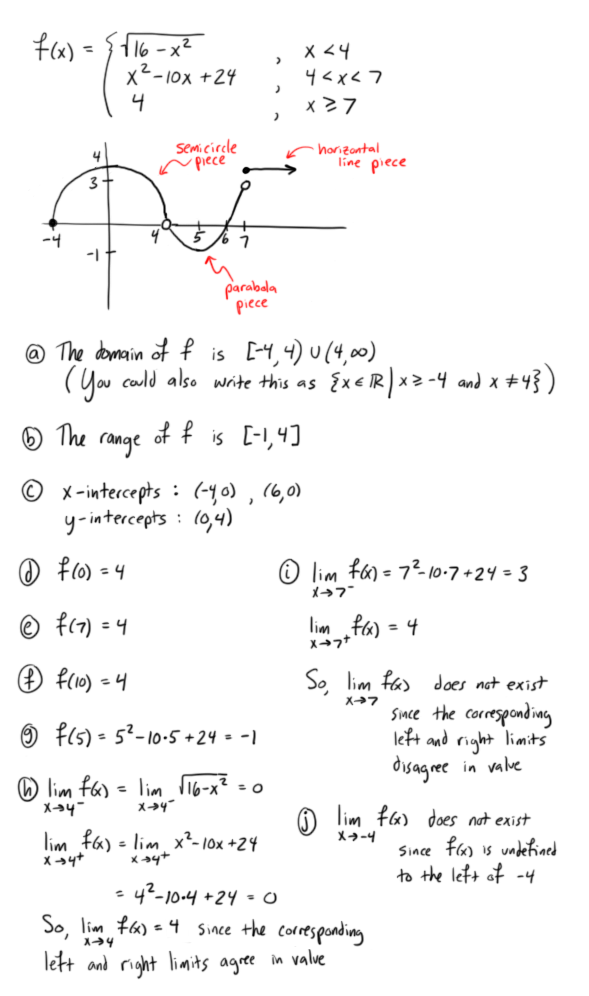 f(x) = { √16 - x² , x < 4
x² - 10x + 24 , 4 < x < 7
4 , x ≥ 7
semicircle piece
horizontal line piece
4
3
-4
4
5
6
7
-1
parabola piece
ⓐ The domain of f is [-4, 4) ∪ (4, ∞)
(You could also write this as {x ∈ ℝ | x ≥ -4 and x ≠ 4})
ⓑ The range of f is [-1, 4]
ⓒ x-intercepts : (-4,0) , (6,0)
y-intercepts : (0,4)
ⓓ f(0) = 4
ⓔ f(7) = 4
ⓕ f(10) = 4
ⓖ f(5) = 5² - 10·5 + 24 = -1
ⓗ lim x→4⁻ f(x) = lim x→4⁻ √16-x² = 0
lim x→4⁺ f(x) = lim x→4⁺ x² - 10x + 24
= 4² - 10·4 + 24 = 0
So, lim x→4 f(x) = 4 since the corresponding
left and right limits agree in value
ⓘ lim x→7⁻ f(x) = 7² - 10·7 + 24 = 3
lim x→7⁺ f(x) = 4
So, lim x→7 f(x) does not exist
since the corresponding
left and right limits
disagree in value
ⓙ lim x→-4 f(x) does not exist
since f(x) is undefined
to the left of -4